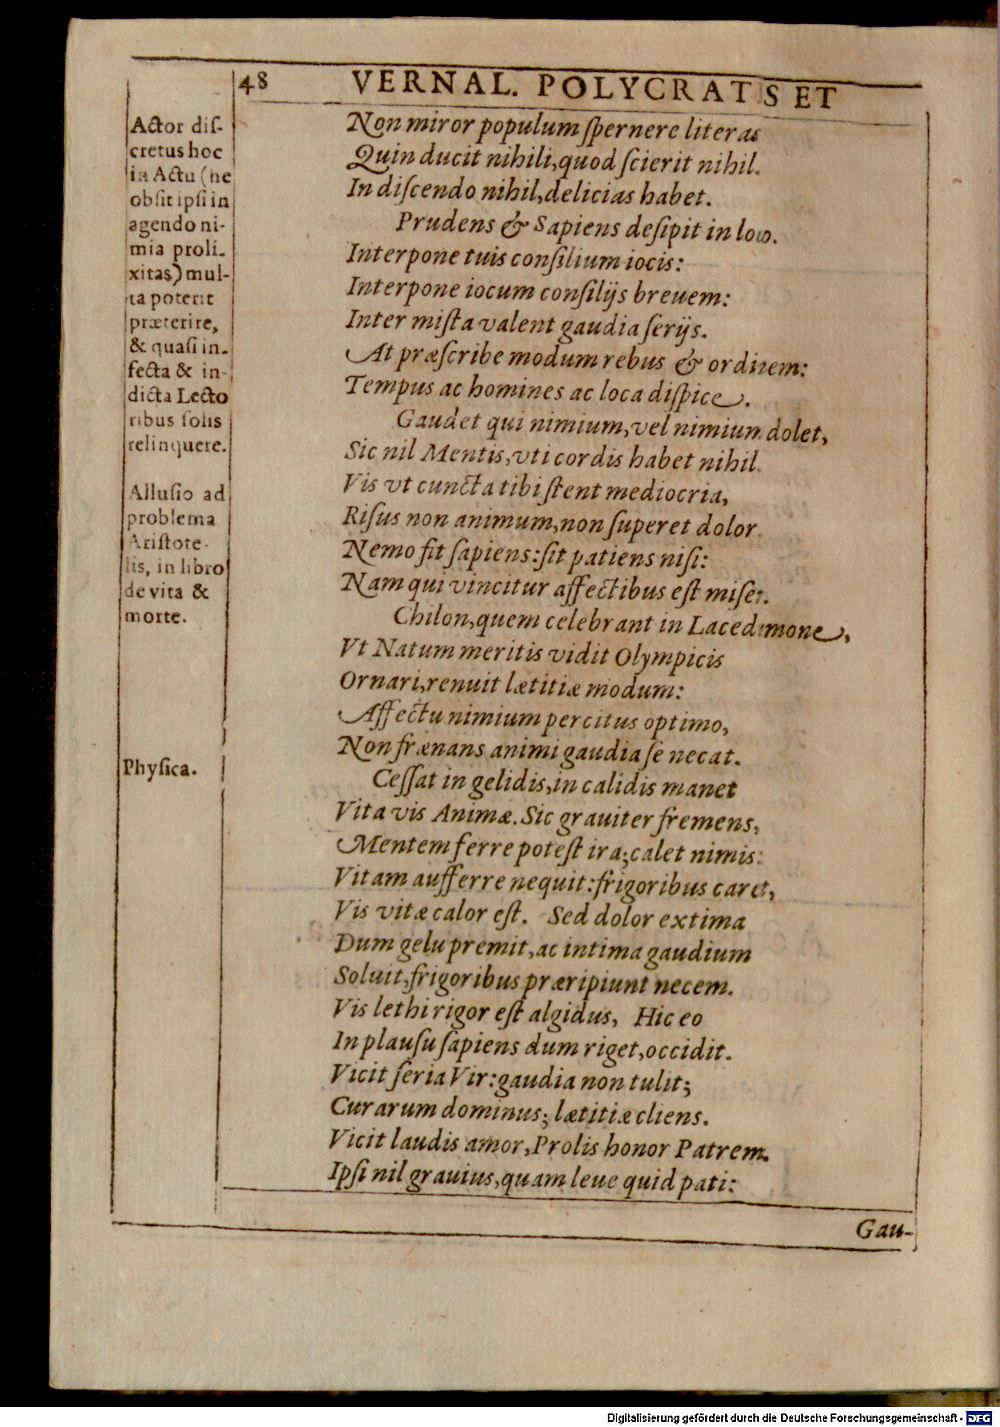 48 VERNAL. POLYCRATIS ET
Actor diſ-
cretus hoc
in Actu (ne
obſit ipſi in
agendo ni-
mia proli-
xitas) mul-
ta poterit
præterire,
& quaſi in-
fecta & in-
dicta Lecto
ribus ſolis
relinquere.
Alluſio ad
problema
Ariſtote-
lis, in libro
de vita &
morte.
Phyſica.
Non miror populum ſpernere literas
Quin ducit nihili, quod ſcierit nihil.
In diſcendo nihil, delicias habet.
Prudens & Sapiens deſipit in loco.
Interpone tuis conſilium iocis:
Interpone iocum conſilijs breuem:
Inter miſta valent gaudia ſerijs.
At præſcribe modum rebus & ordinem:
Tempus ac homines ac loca diſpice.
Gaudet qui nimium, vel nimium dolet,
Sic nil Mentis, vti cordis habet nihil.
Vis vt cuncta tibi ſtent mediocria,
Riſus non animum, non ſuperet dolor.
Nemo fit ſapiens: ſit patiens niſi:
Nam qui vincitur affectibus eſt miſer.
Chilon, quem celebrant in Lacedæmone,
Vt Natum meritis vidit Olympicis
Ornari, renuit lætitiæ modum:
Affectu nimium percitus optimo,
Non frænans animi gaudia ſe necat.
Ceſſat in gelidis, in calidis manet
Vita vis Animæ. Sic grauiter fremens,
Mentem ferre poteſt ira; calet nimis:
Vitam aufferre nequit: frigoribus caret,
Vis vitæ calor eſt. Sed dolor extima
Dum gelu premit, ac intima gaudium
Soluit, frigoribus præripiunt necem.
Vis lethi rigor eſt algidus, Hic eo
In plauſu ſapiens dum riget, occidit.
Vicit ſeria Vir: gaudia non tulit;
Curarum dominus; lætitiæ cliens.
Vicit laudis amor, Prolis honor Patrem.
Ipſi nil grauius, quam leue quid pati:
Gau-
Digitalisierung gefördert durch die Deutsche Forschungsgemeinschaft - DFG